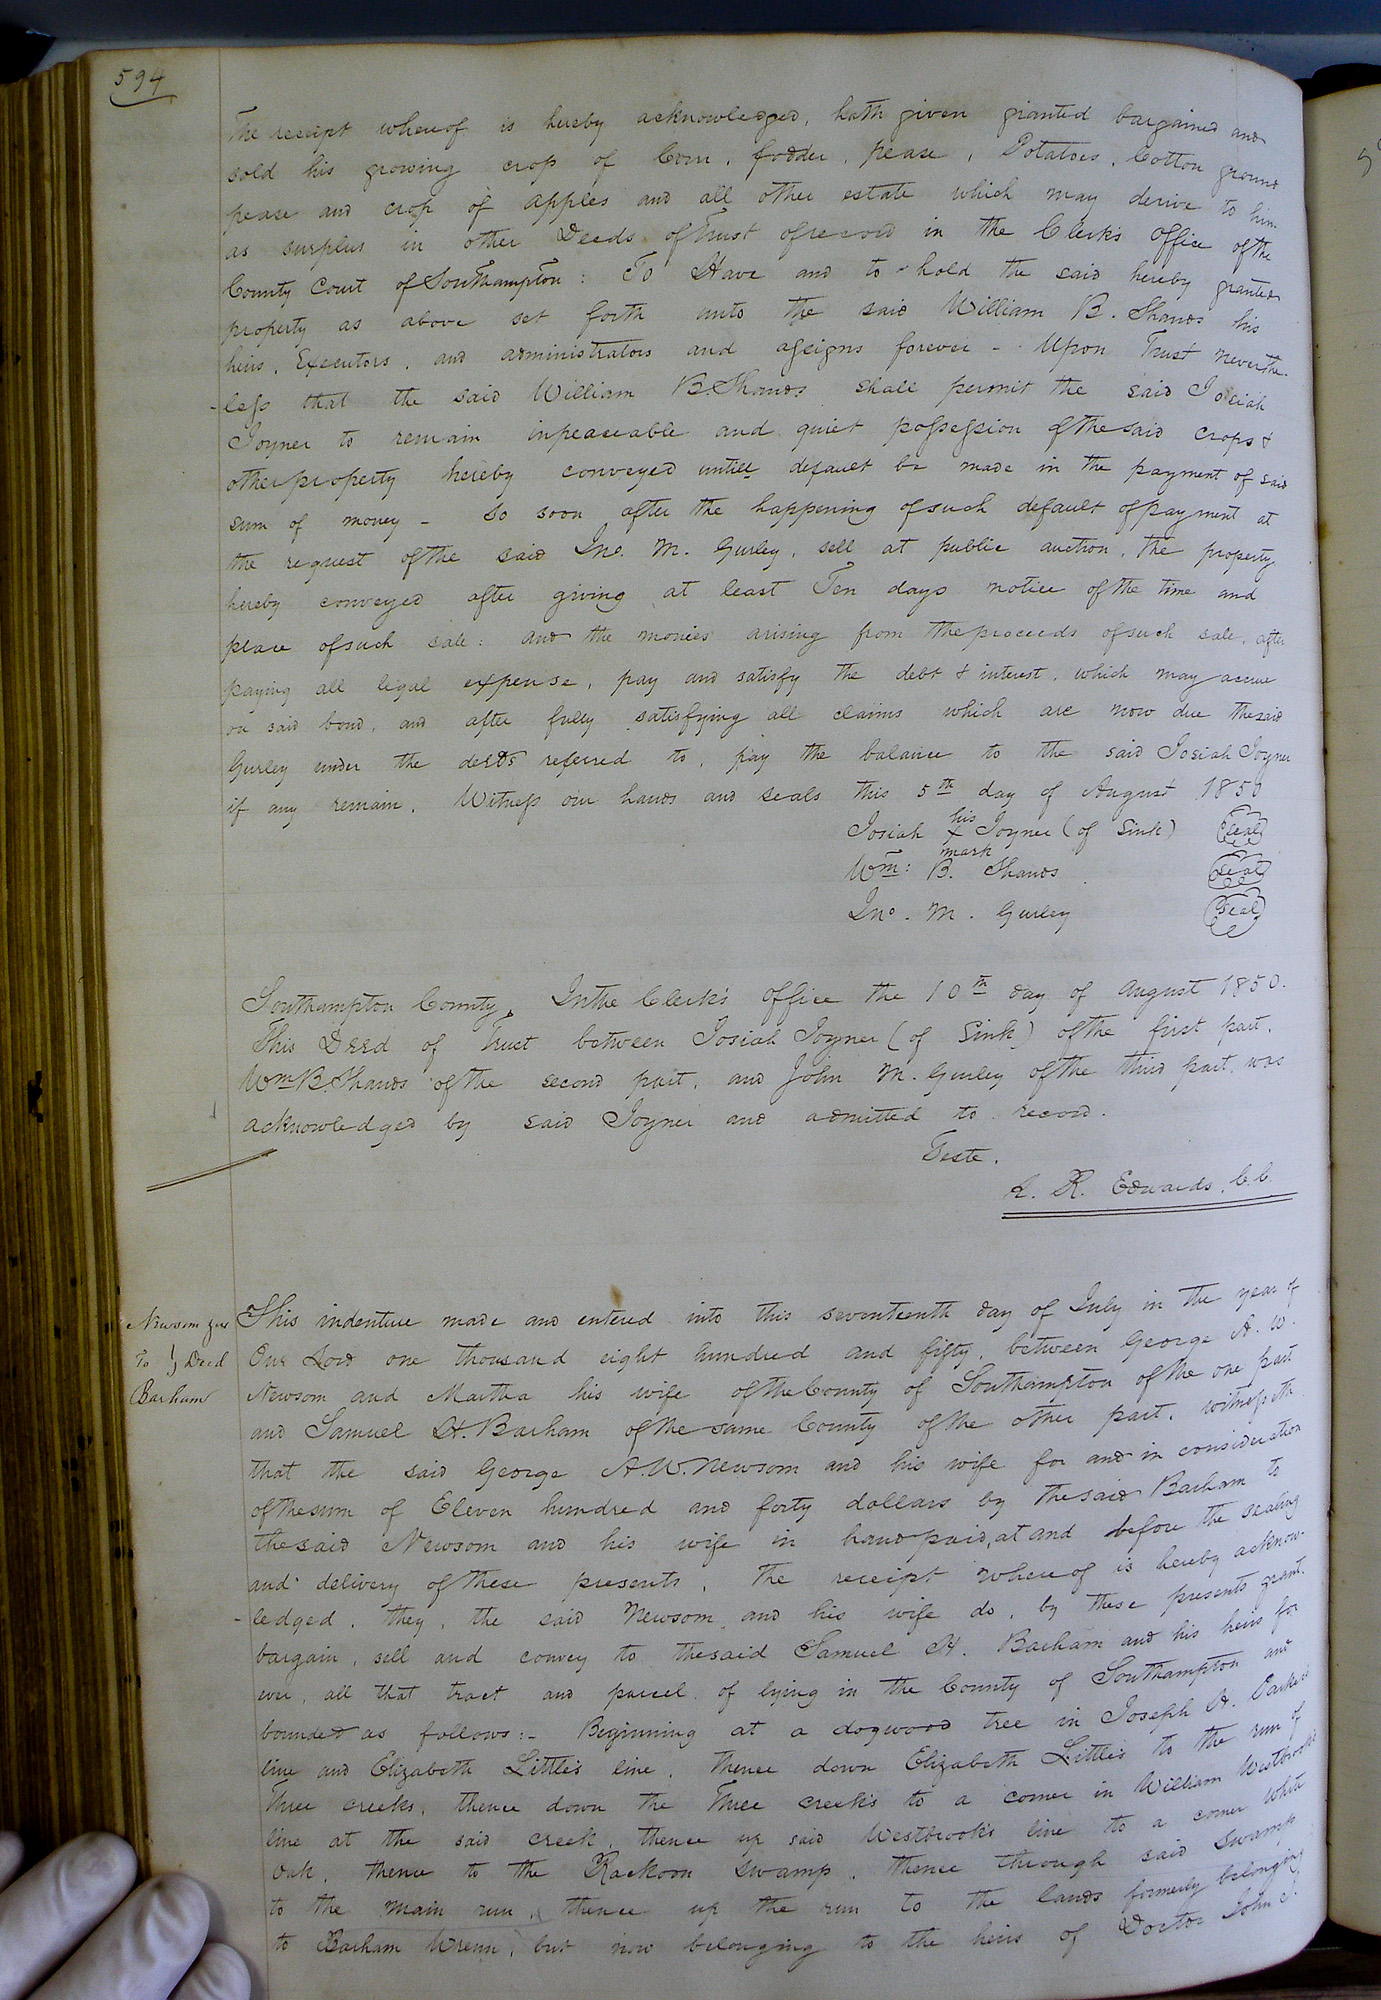 594
The receipt whereof is hereby acknowledged, hath given granted bargained and
sold his growing crop of Corn, fodder, pease, Potatoes, Cotton ground
pease and crop of apples and all other estate which may derive to him
as surplus in other Deeds of Trust of record in the Clerk's office of the
County Court of Southampton: To Have and to hold the said hereby granted
property as above set forth unto the said William B. Shands his
heirs, Executors, and administrators and assigns forever - Upon Trust neverthe-
-less that the said William B. Shands shall permit the said Josiah
Joyner to remain inpeaceable and quiet possession of the said crops &
other property hereby conveyed untill default be made in the payment of said
sum of money - So soon after the happening of such default of payment at
the request of the said Jno. M. Gurley, sell at public auction, the property
hereby conveyed after giving at least Ten days notice of the time and
place of such sale: and the monies arising from the proceeds of such sale, after
paying all legal expense, pay and satisfy the debt & interest, which may accrue
on said bond, and after fully satisfying all claims which are now due the said
Gurley under the deeds referred to, pay the balance to the said Josiah Joyner
if any remain. Witness our hands and seals this 5th day of August 1850
his
Josiah X Joyner (of Sink) Seal
mark
Wm: B. Shands Seal
Jno. M. Gurley Seal
Southampton County, In the Clerk's office the 10th day of August 1850.
This Deed of Trust between Josiah Joyner (of Sink) of the first part,
Wm B. Shands of the second part, and John M. Gurley of the third part, was
acknowledged by said Joyner and admitted to record.
Teste.
L. R. Edwards, C.C.
Newsom &ux
To } Deed
Barham
This indenture made and entered into this seventeenth day of July in the year of
Our Lord one thousand eight hundred and fifty, between George A. W.
Newsom and Martha his wife of the County of Southampton of the one part
and Samuel H. Barham of the same County of the other part, witnesseth
that the said George A. W. Newsom and his wife for and in consideration
of the sum of Eleven hundred and forty dollars by the said Barham to
the said Newsom and his wife in hand paid, at and before the sealing
and delivery of these presents, the receipt whereof is hereby acknow-
-ledged, they, the said Newsom and his wife do, by these presents grant,
bargain, sell and convey to the said Samuel H. Barham and his heirs for
ever, all that tract and parcel of lying in the County of Southampton and
bounded as follows:- Beginning at a dogwood tree in Joseph H. Parker's
line and Elizabeth Little's line, thence down Elizabeth Little's to the run of
Three creeks, thence down the Three creeks to a corner in William Westbrook's
line at the said creek, thence up said Westbrook's line to a corner white
Oak, thence to the Rackoon swamp, thence through said swamp
to the main run, thence up the run to the lands formerly belonging
to Barham Wrenn, but now belonging to the heirs of Doctor John S.